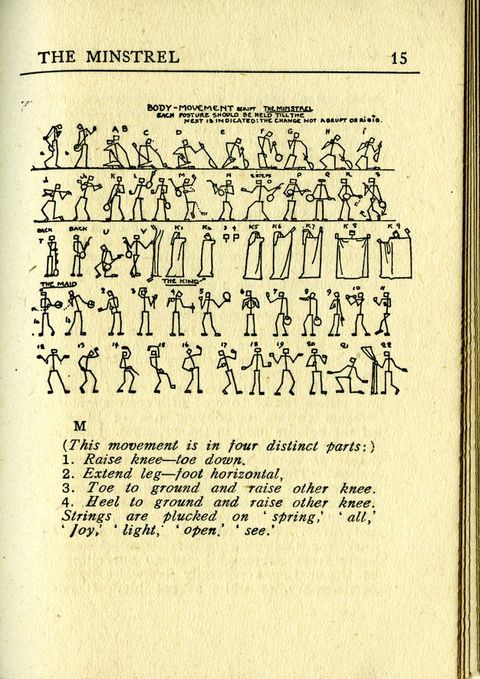 THE MINSTREL 15
BODY-MOVEMENT SCRIPT THE MINSTREL
EACH POSTURE SHOULD BE HELD TILL THE
NEXT IS INDICATED: THE CHANGE NOT ABRUPT OR RIGID.
A B C D E F G H I
J K L M N O P Q R S
BACK BACK U V K1 K2 3 4 K5 K6 K7 K8 K9
T
THE MAID THE KING
1 2 3 4 5 6 7 8 9 10 11
12 13 14 15 16 17 18 19 20 21 22
M
(This movement is in four distinct parts:)
1. Raise knee—toe down.
2. Extend leg—foot horizontal,
3. Toe to ground and raise other knee.
4. Heel to ground and raise other knee.
Strings are plucked on ‘spring,’ ‘all,’
‘Joy,’ ‘light,’ ‘open.’ ‘see.’